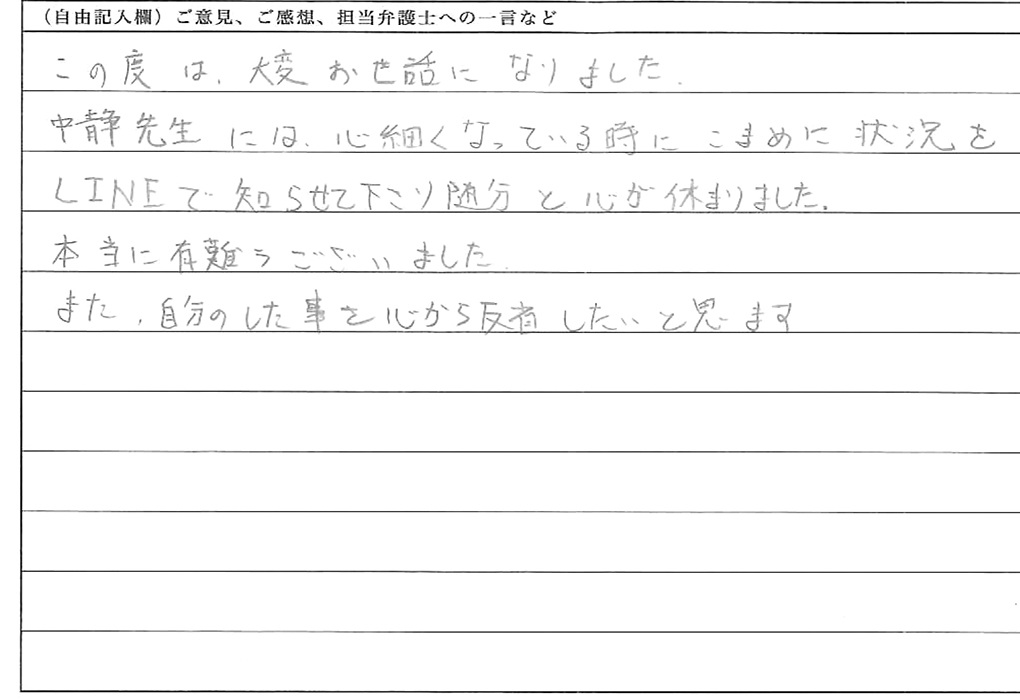 （自由記入欄）ご意見、ご感想、担当弁護士への一言など
この度は、大変お世話になりました。
中静先生には、心細くなっている時にこまめに状況を
LINEで知らせて下さり随分と心が休まりました。
本当に有難うございました。
また、自分のした事を心から反省したいと思います